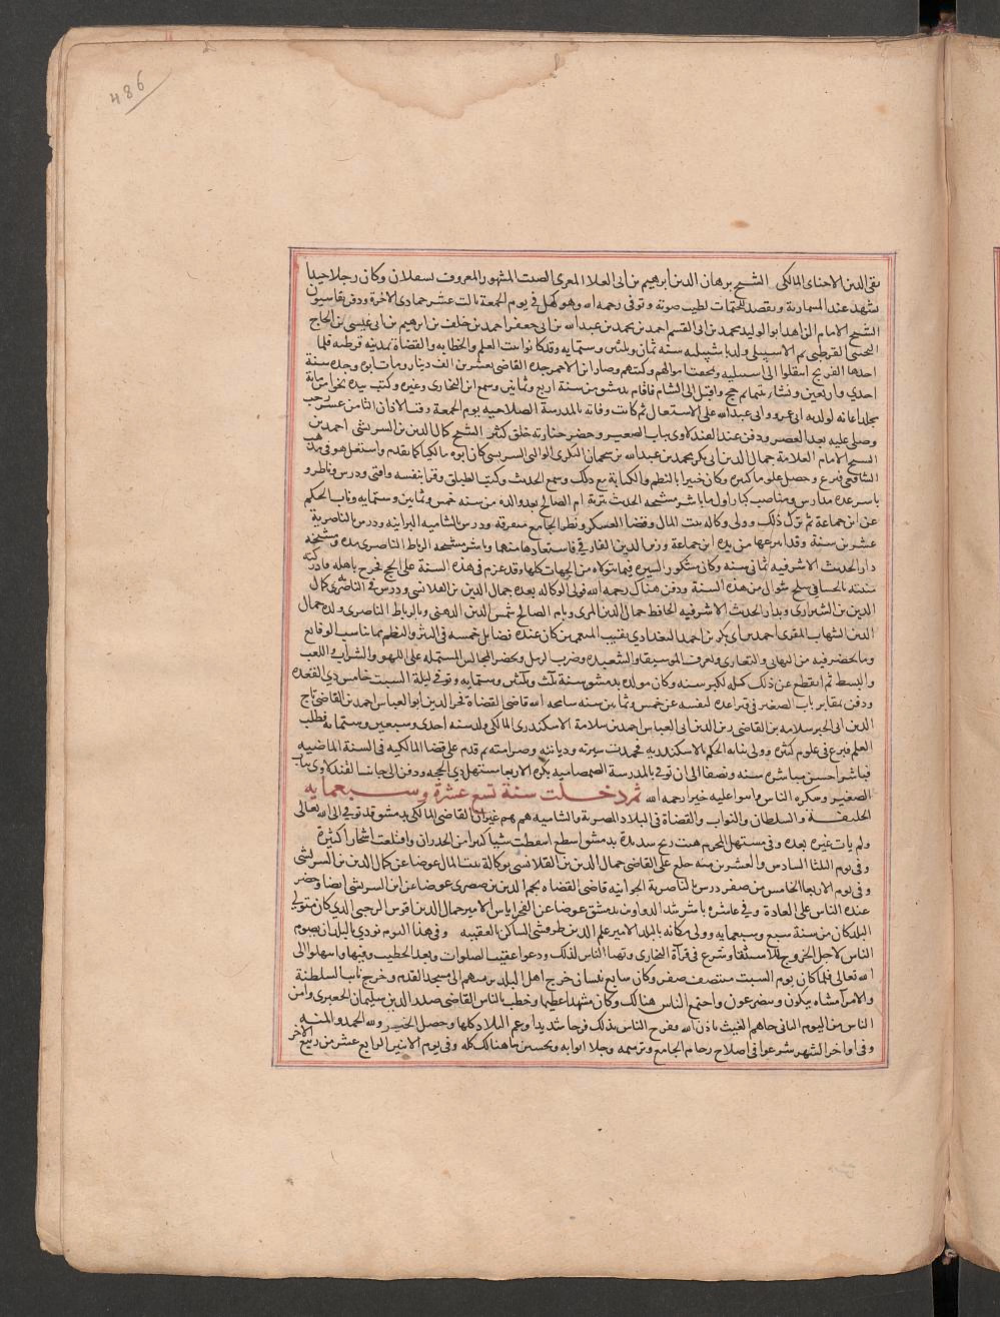 486
تقى الدين الاخناى المالكى الشيخ برهان الدين ابرهيم بن ابى العلا المعرى الصيت المشهور المعروف بسعلان وكان رجلا جيدا
يشهد عند السمارية ويقصد للختمات لطيب صوته وتوفى رحمه الله وهو كهل فى يوم الجمعة ثالث عشر جمادى الاخرة ودفن بقاسيون
الشيخ الامام الزاهد ابو الوليد محمد بن ابى القسم احمد بن محمد بن عبد الله بن ابى جعفر احمد بن خلف بن ابرهيم بن ابى عيسى بن الحاج
التجيبى القرطبى ثم الاشبيلى ولد باشبيلية سنة ثمان وثلثين وستمايه وقد كانوا بيت العلم والخطابه والقضاة بمدينه قرطبه فلما
اخذها الفرنج انتقلوا الى اشبيليه وتمحقت اموالهم وكتبهم وصادر ابن الاحمر جده القاضى بعشرين الف دينار ومات ابوه وجده سنة
احدى واربعين ونشا يتيما ثم حج واقبل الى الشام فاقام بدمشق من سنة اربع وثمانين وسمع ابن البخارى وغيره وكتب بيده نحوا من ماية
مجلد اعانة لولديه ابى عمرو وابى عبد الله على الاشتغال ثم كانت وفاته بالمدرسة الصلاحيه يوم الجمعة وقت الاذان الثامن عشر رجب
وصلى عليه بعد العصر ودفن عند الفندلاوى بباب الصغير وحضر جنازته خلق كثير الشيخ كمال الدين بن الشريشى احمد بن
الشيخ الامام العلامة جمال الدين ابى بكر محمد بن عبد الله بن سحمان البكرى الوائلى الشريشى كان ابوه مالكيا كما تقدم واشتغل هو فى مذهب
الشافعى فبرع وحصل علوما كثيره وكان خبيرا بالنظم والكتابة مع ذلك وسمع الحديث وكتب الطباق وقرا بنفسه وافتى ودرس وناظر و
باشر عدة مدارس ومناصب كبار اول ما باشر مشيخه الحديث بتربة ام الصالح بعد والده من سنه خمس وثمانين وستمايه وناب الحكم
عن ابن جماعة ثم ترك ذلك وولى وكاله بيت المال وقضا العسكر ونظر الجامع متفرقه ودرس بالشاميه البرانيه ودرس بالناصرية
عشرين سنة وقد انتزعها من يده ابن جماعة وزين الدين الفارقى فاستعادها منهما وباشر مشيخه الرباط الناصرى مدة ومشيخه
دار الحديث الاشرفيه ثمانى سنه وكان مشكور السيره فيما يتولاه من الجهات كلها وقد عزم فى هذه السنة على الحج فخرج باهله فادركته
منيته بالحسا فى سلخ شوال من هذه السنة ودفن هناك رحمه الله فولى الوكاله بعده جمال الدين بن القلانسى ودرس فى الناصريه كمال
الدين بن الشيرازى وبدار الحديث الاشرفيه الحافظ جمال الدين المزى وبام الصالح شمس الدين الذهبى وبالرباط الناصرى ولده جمال
الدين الشهاب المقرى احمد بن ابى بكر بن احمد البغدادى نقيب المتعممين كان عنده فضايل خمسه فى النثر والنظم بما يناسب الوقايع
وما يحضر فيه من التهانى والتعازى ويعرف الموسيقا والشعبذه وضرب الرمل ويحضر المجالس المشتمله على اللهو والشراب واللعب
والبسط ثم انقطع عن ذلك كله لكبر سنه وكان مولده بدمشق سنة ثلث وثلثين وستمايه وتوفى ليلة السبت خامس ذى القعده
ودفن بمقابر باب الصغير فى قبر اعده لنفسه عن خمس وثمانين سنه سامحه الله قاضى القضاة فخر الدين ابو العباس احمد بن القاضى تاج
الدين ابى الخير سلامه بن القاضى زين الدين ابى العباس احمد بن سلامة الاسكندرى المالكى ولد سنه احدى وسبعين وستمايه فطلب
العلم فبرع فى علوم كثره وولى نيابه الحكم بالاسكندريه فحمدت سيرته وديانته وصرامته ثم قدم على قضا المالكيه فى السنة الماضيه
فباشر احسن مباشره سنه ونصفا الى ان توفى بالمدرسة الصمصاميه بكره الاربعا مستهل ذى الحجه ودفن الى جانب الفندلاوى بباب
الصغير وشكره الناس واثنوا عليه خيرا رحمه الله ثم دخلت سنة تسع عشرة وسبعمايه
الخليفة والسلطان والنواب والقضاة فى البلاد المصرية والشاميه هم هم غير ان القاضى المالكى بدمشق قد توفى الى الله تعالى
ولم يات غيره بعده وفى مستهل المحرم هبت ريح شديدة بدمشق اسقطت شيا كثيرا من الجدران واقتلعت اشجارا كثيرة
وفى يوم الثلثا السادس والعشرين منه خلع على القاضى جمال الدين بن القلانسى بوكالة بيت المال عوضا عن كمال الدين بن الشريشى
وفى يوم الاربعا الخامس من صفر درس بالناصرية الجوانيه قاضى القضاه نجم الدين بن صصرى عوضا عن ابن الشريشى ايضا وحضر
عنده الناس على العادة وفى عاشره باشر شد الدواوين بدمشق عوضا عن الفخر اياس الامير جمال الدين اقوش الرحبى الذى كان متولى
البلد كان من سنة سبع وسبعمايه وولى مكانه بالبلد الامير علم الدين طرقشى الساكن بالعقيبه وفى هذا اليوم نودى بالبلد ان يصوم
الناس لاجل الخروج للاستسقا وشرع فى قراة البخارى وتهيا الناس لذلك ودعوا عقيب الصلوات وبعد الخطيب وفيها وابتهلوا الى
الله تعالى فلما كان يوم السبت منتصف صفر وكان سابع نيسان خرج اهل البلد برمتهم الى مسجد القدم وخرج نايب السلطنة
والامرا مشاه يبكون ويتضرعون واجتمع الناس هنالك وكان مشهدا عظيما وخطب بالناس القاضى صدر الدين سليمان الجعبرى وامن
الناس من اليوم الثانى جاهم الغيث باذن الله وفرح الناس بذلك فرحا شديدا وعم البلاد كلها وحصل الخير ولله الحمد والمنه
وفى اواخر الشهر شرعوا فى اصلاح رخام الجامع وترميمه وجلا ابوابه وتحسين ما هنالك كله وفى يوم الاثنين الرابع عشر من ربيع الاخر